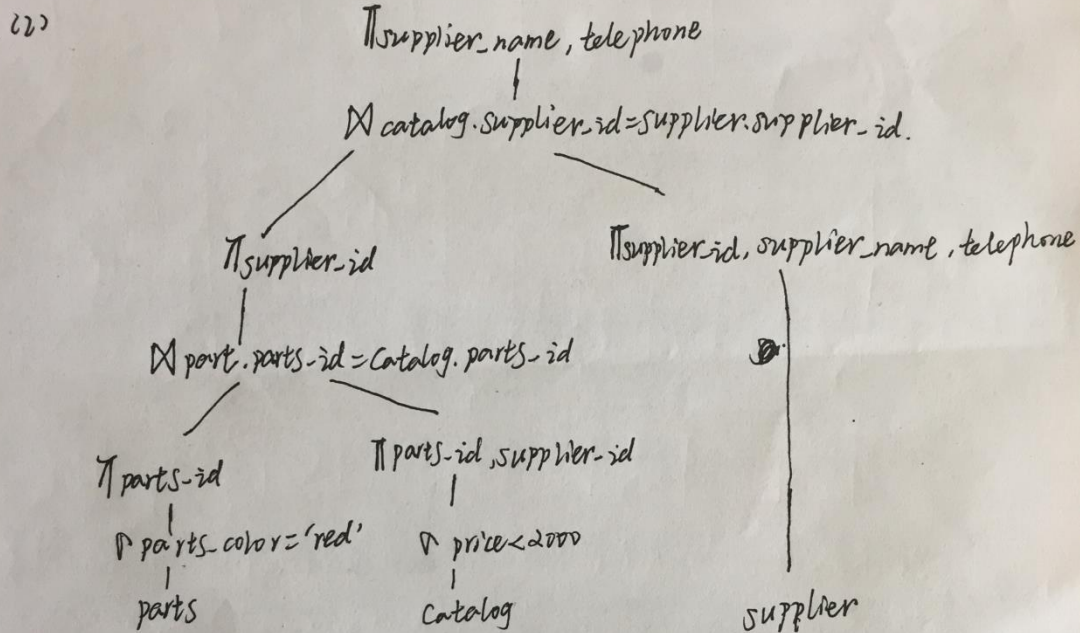 (2)
π supplier_name, telephone
⋈ catalog.supplier_id=supplier.supplier_id.
π supplier_id
π supplier_id, supplier_name, telephone
⋈ part.parts_id=catalog.parts_id
π parts_id
π parts_id, supplier_id
σ parts_color='red'
σ price<2000
parts
catalog
supplier